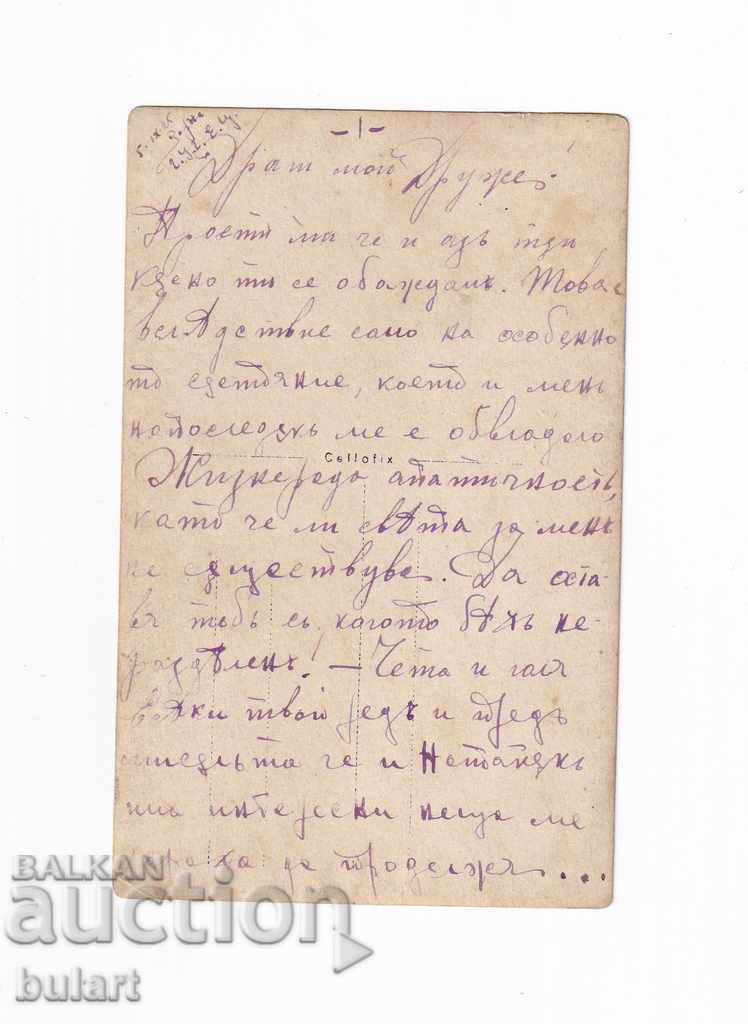 -1-
5.IX
Драги мой Друже!
Прости ма че и азъ тъй
късно ти се обаждамъ. Това е
вслѣдствие само на особенно
то състояние, което и менъ
напоследъкъ ме е обвладело
Жизнерада апатичность,
като че ли свѣта за менъ
не съществува. Да оста
вя тебъ съ, когото бѣхъ не-
раздѣленъ! — Чета и
всѣки твой редъ и предъ
мисъльта че и
интересни неща ме
да продължъ...
Cellofix
BALKAN
auction
bulart